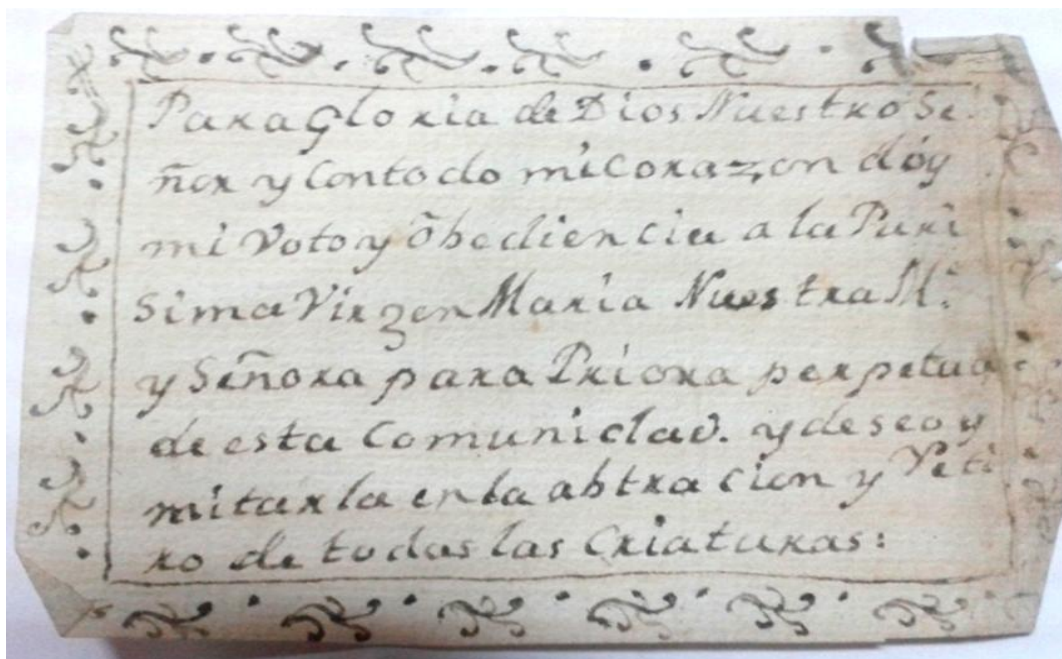 Para gloria de Dios Nuestro Se
ñor y Con todo mi Corazon dóy
mi Voto y õbediencia a la Puri
sima Virgen Maria Nuestra M.
y Señora para Priora perpetua
de esta Comunidad. y deseo y
mitarla en la abtracion y Reti
ro de todas las Criaturas: